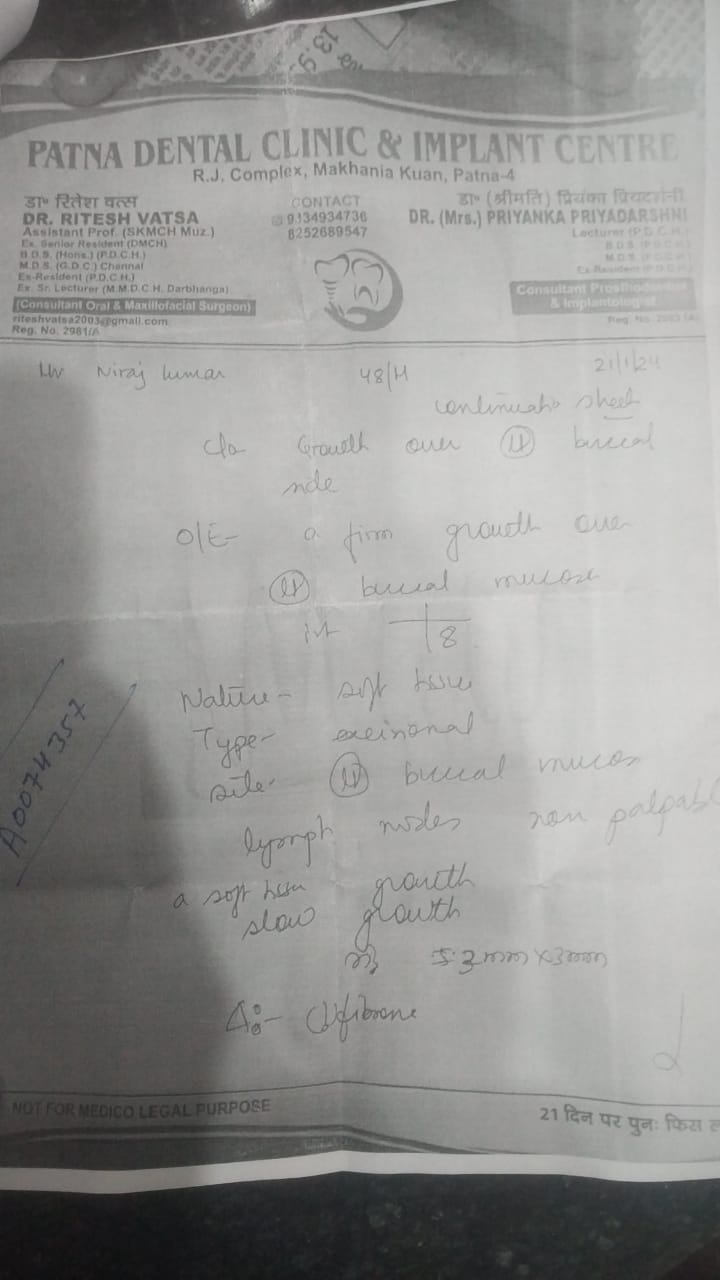 13.9
PATNA DENTAL CLINIC & IMPLANT CENTRE
R.J. Complex, Makhania Kuan, Patna-4
डा॰ रितेश वत्स
DR. RITESH VATSA
Assistant Prof. (SKMCH Muz.)
Ex. Senior Resident (DMCH)
B.D.S. (Hons.) (P.D.C.H.)
M.D.S. (G.D.C.) Chennai
Ex-Resident (P.D.C.H.)
Ex. Sr. Lecturer (M.M.D.C.H. Darbhanga)
(Consultant Oral & Maxillofacial Surgeon)
riteshvatsa2003@gmail.com
Reg. No. 2981/A
CONTACT
9334934736
8252689547
डा॰ (श्रीमति) प्रियंका प्रियदर्शनी
DR. (Mrs.) PRIYANKA PRIYADARSHNI
Lecturer (P.D.C.H.)
B.D.S. (P.D.C.H.)
M.D.S. (P.D.C.H.)
Ex-Resident (P.D.C.H.)
Consultant Prosthodontist
& Implantologist
Reg. No.
Mr Niraj kumar 48/M 21/1/24
continuatio sheet
C/o Growth over buccal
side
O/E- a firm growth over
buccal mucosa
8
Nature- soft tissue
Type- excisional
site- buccal mucosa
lymph nodes non palpabl
a soft tissue growth
slow growth
3mm x 3mm
Δ:- fibroma
A0074357
NOT FOR MEDICO LEGAL PURPOSE
21 दिन पर पुनः फिस